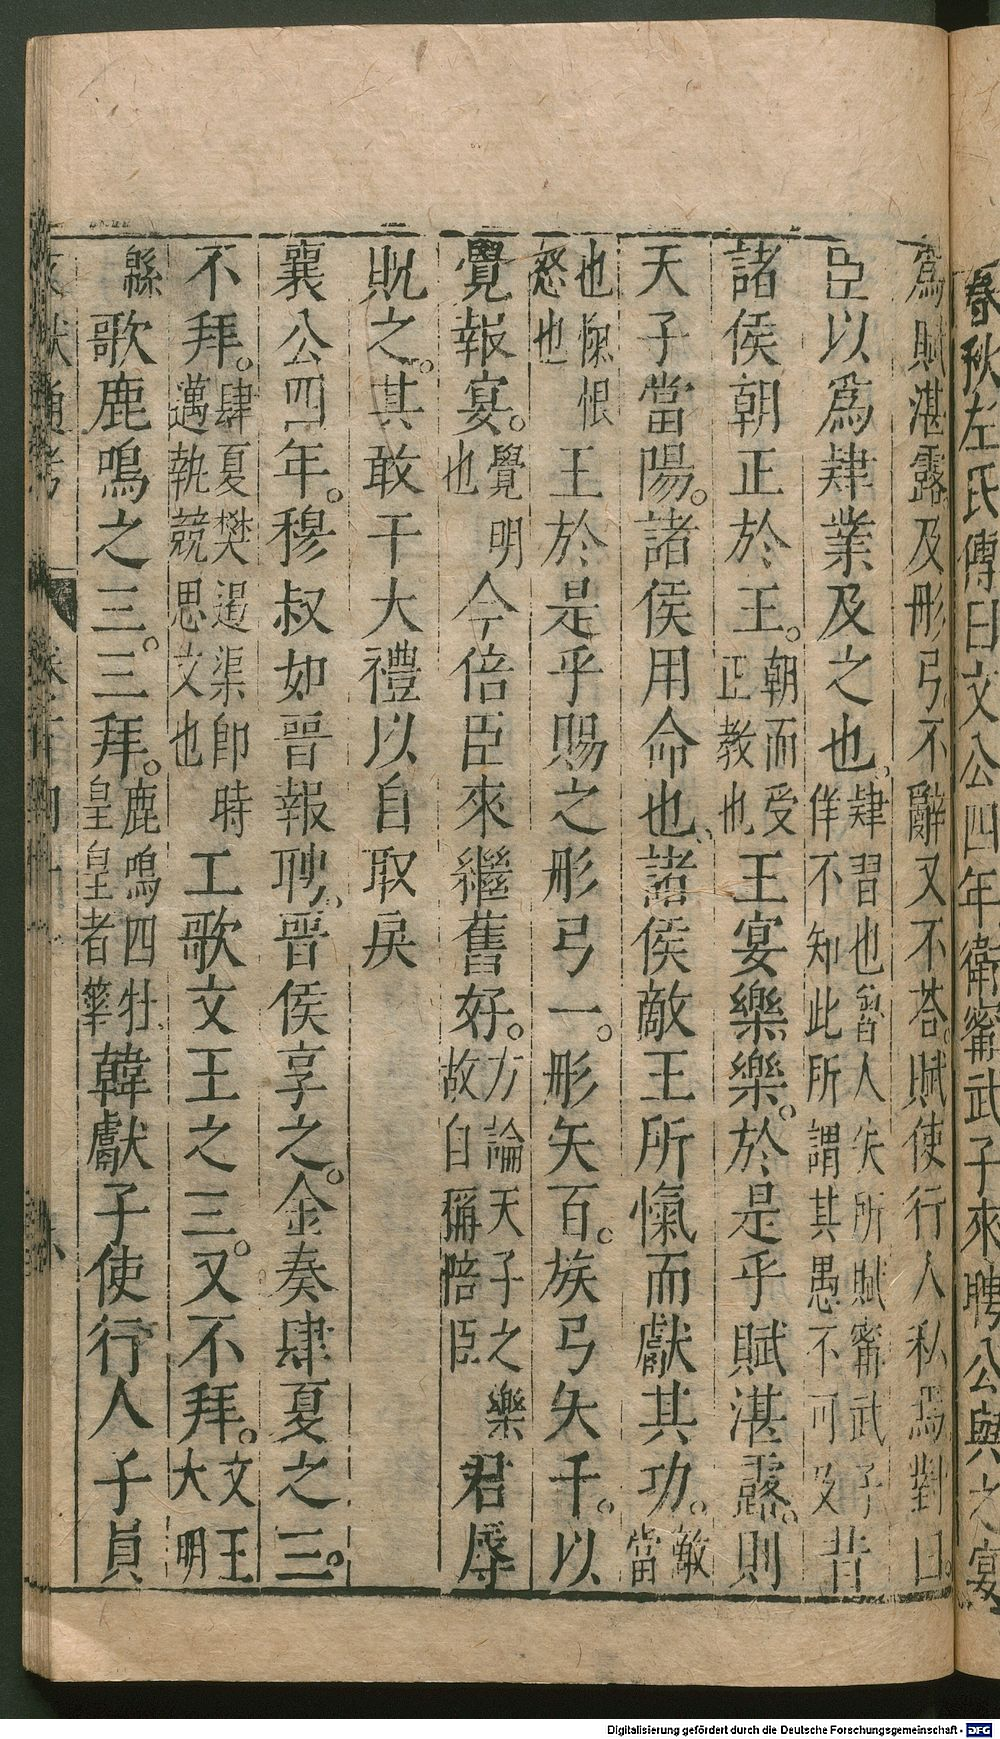 春秋左氏傳曰文公四年衛甯武子來聘公與之宴
爲賦湛露及彤弓不辭又不荅。賦使行人私焉對曰。
臣以爲肄業及之也。肄習也魯人失所賦甯武子佯不知此所謂其愚不可及昔
諸侯朝正於王。朝而受正教也王宴樂樂。於是乎賦湛露。則
天子當陽。諸侯用命也、諸侯敵王所愾而獻其功。敵當
也愾恨怒也王於是乎賜之彤弓一。彤矢百。玈弓矢千。以
覺報宴。覺明也今倍臣來繼舊好。方論天子之樂故自稱陪臣君辱
貺之。其敢干大禮以自取戾
襄公四年。穆叔如晉報聘、晉侯享之。金奏肆夏之三。
不拜。肆夏樊遏渠即時邁執競思文也工歌文王之三。又不拜。文王大明
緜歌鹿鳴之三。三拜。鹿鳴四牡皇皇者華韓獻子使行人子員
Digitalisierung gefördert durch die Deutsche Forschungsgemeinschaft - DFG